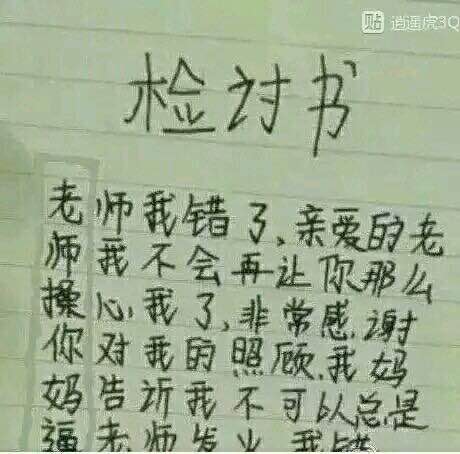 贴 逍遥虎3Q
检讨书
老师我错了,亲爱的老
师我不会再让你那么
操心,我了,非常感谢
你对我的照顾.我妈
妈告诉我不可以总是
逼老师发火 我错